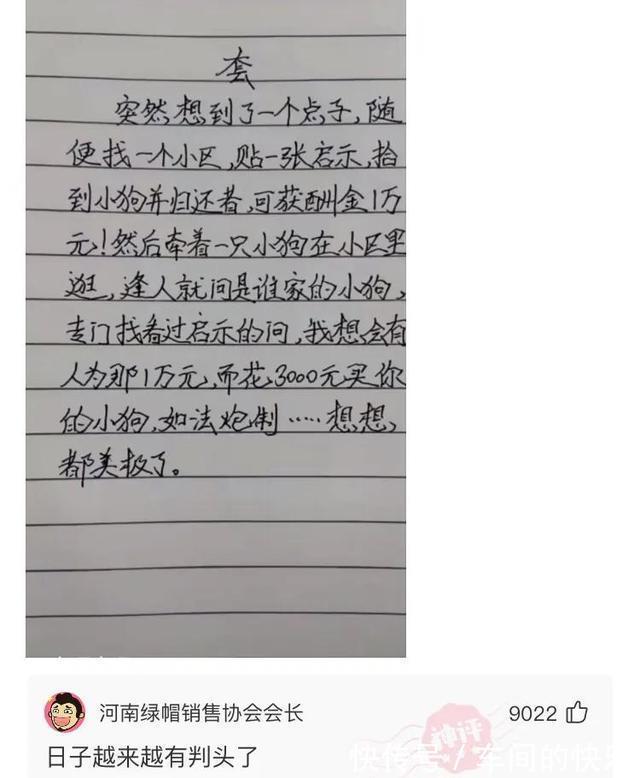 套
突然想到了一个点子,随
便找一个小区,贴一张启示,拾
到小狗并归还者,可获酬金1万
元!然后牵着一只小狗在小区里
逛,逢人就问是谁家的小狗,
专门找看过启示的问,我想会有
人为那1万元,而花3000元买你
的小狗,如法炮制……想想,
都美极了。
河南绿帽销售协会会长
9022
神评
日子越来越有判头了
快传号/车间的快乐